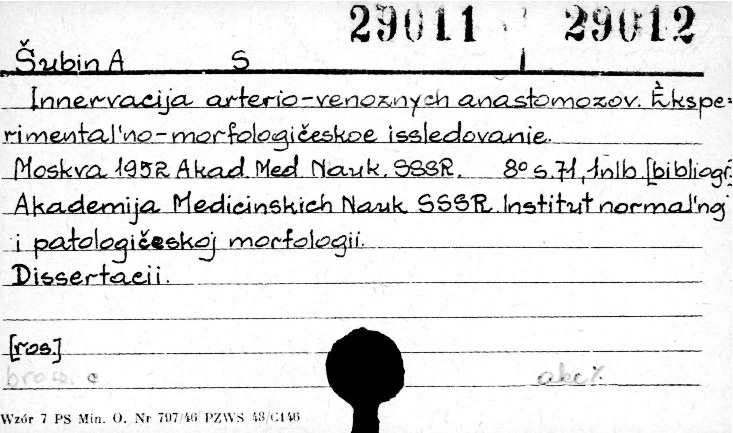 29011 29012
Šubin A S
Innervacija arterio-venoznych anastomozov. Èkspe=
rimental'no-morfologičeskoe issledovanie.
Moskva 1952 Akad. Med. Nauk. SSSR. 8° s. 71, 1nlb. [bibliogr.]
Akademija Medicinskich Nauk SSSR. Institut normal'noj
i patologičeskoj morfologii.
Dissertacii.
[ros.]
brosz.
Wzór 7 PS Min. O. Nr 797/46 PZWS 48/C146